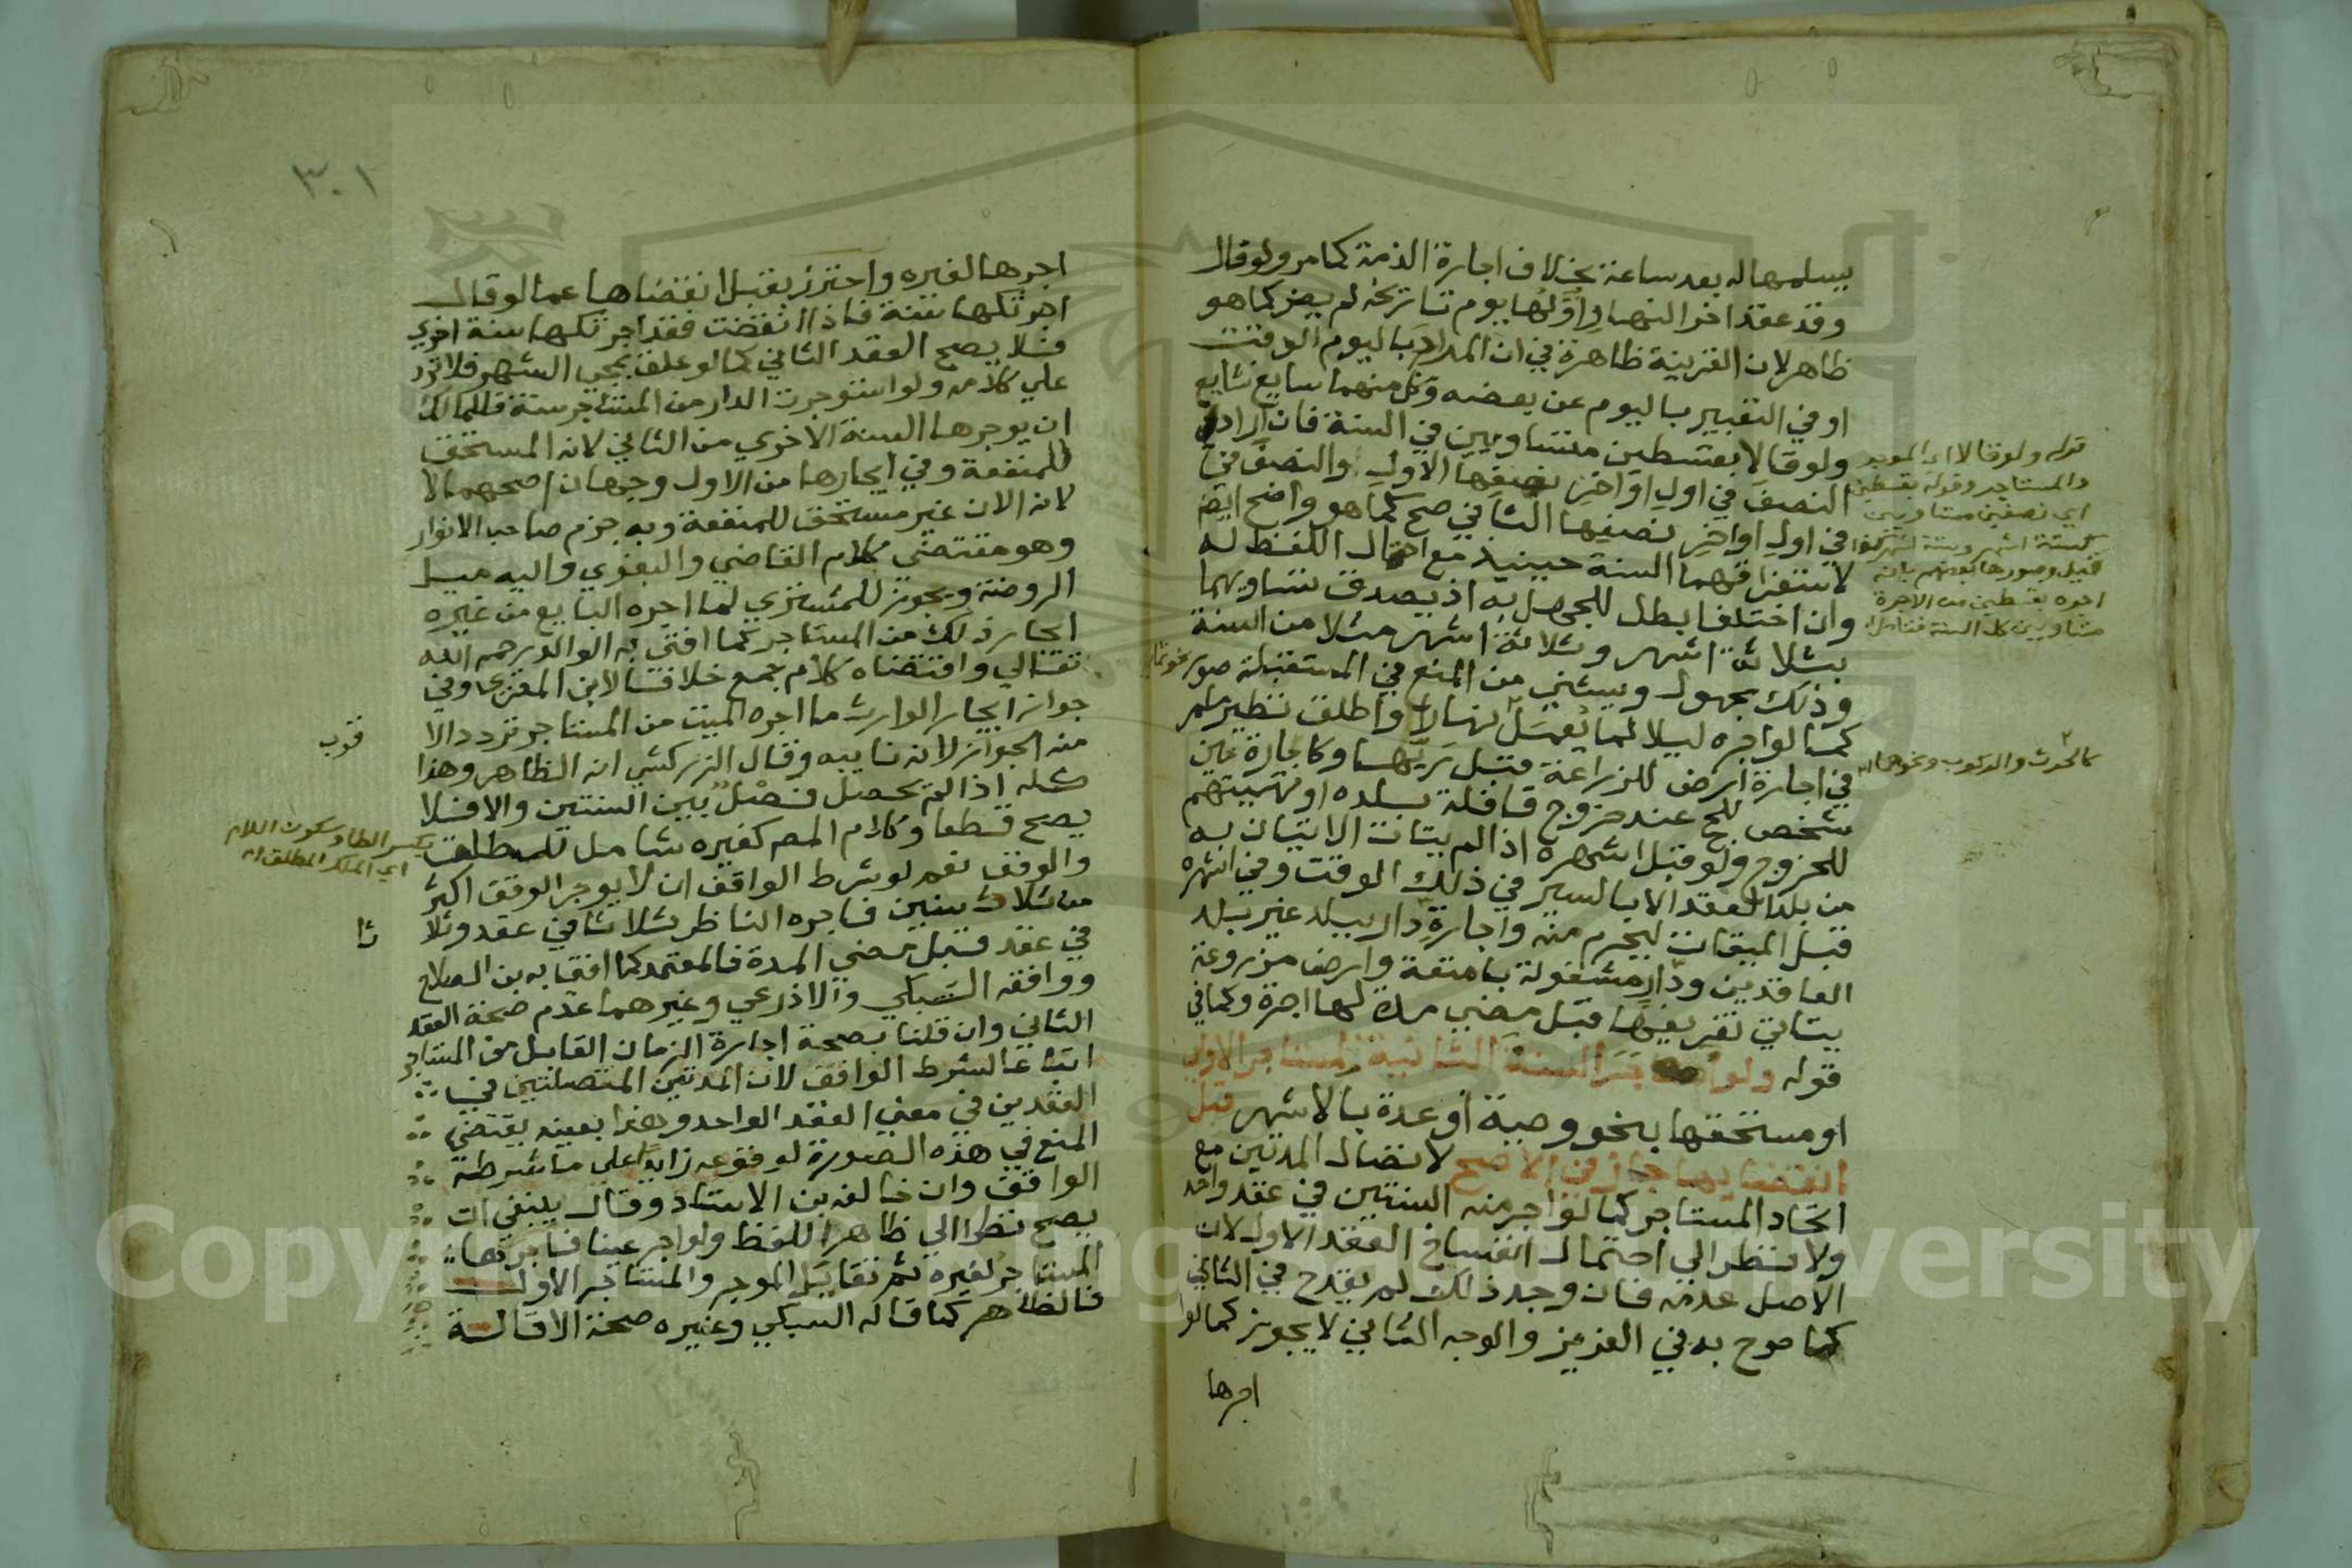 يسلمها له بعد ساعة بخلاف اجارة الذمة كما مر ولو قال
وقد عقد اخر النهار اولها يوم تاريخه لم يضر كما هو
ظاهر لان القرينة ظاهرة في ان المراد باليوم الوقت
او في التعبير باليوم عن بعضه وكل منهما سايغ شايع
ولو قالا بقسطين متساويين في السنة فان ارادا
النصف في اول او اخر نصفها الاول والنصف في
في اول او اخر نصفها الثاني صح كما هو واضح ايضا
لاستغراقهما السنة حينيذ مع احتمال اللفظ له
وان اختلفا بطل للجهل به اذ يصدق تساويهما
بثلاثة اشهر وثلاثة اشهر مثلا من السنة
وذلك مجهول ويستثني من المنع في المستقبلة صور
كما لو اجره ليلا لما يعمل نهارا واطلق نظير ما مر
في اجارة ارض للزراعة قبل ريها وكاجارة عين
شخص للحج عند خروج قافلة بلده او تهييتهم
للخروج ولو قبل اشهره اذا لم يتات الاتيان به
من بلد العقد الا بالسير في ذلك الوقت وفي اشهره
قبل الميقات ليحرم منه واجارة دار ببلد غير بلد
العاقدين ودار مشغولة بامتعة وارض مزروعة
يتاتي تفريغها قبل مضي مدة لها اجرة وكما في
قوله ولو اجر السنة الثانية لمستاجر الاولي
او مستحقها بنحو وصية او عدة بالاشهر قبل
انقضايها جاز في الاصح لاتصال المدتين مع
اتحاد المستاجر كما لو اجر منه السنتين في عقد واحد
ولا ينظر الي احتمال انفساخ العقد الاول لان
الاصل عدمه فان وجد ذلك لم يقدح في الثاني
كما صرح به في العزيز والوجه الثاني لا يجوز كما لو
اجرها
قوله ولو قالا اي الموجر
والمستاجر وقوله بقسطين
اي نصفين متساويين
كستة اشهر وستة اشهر
قيل وصورها بعضهم بانه
اجره بقسطين من الاجرة
متساويين كل السنة فتامل
كالحرث والركوب ونحوهما اه
٣٠١
اجرها لغيره واحترز بقبل انقضاها عما لو قال
اجرتكها سنة فاذا انقضت فقد اجرتكها سنة اخري
فلا يصح العقد الثاني كما لو علق بمجي الشهر فلا ترد
علي كلامه ولو استوجرت الدار من المستاجر سنة فللمالك
ان يوجرها السنة الاخري من الثاني لانه المستحق
للمنفعة وفي ايجارها من الاول وجهان اصحهما لا
لانه الان غير مستحق للمنفعة وبه جزم صاحب الانوار
وهو مقتضي كلام القاضي والبغوي واليه ميل
الروضة ويجوز للمشتري لما اجره البايع من غيره
ايجار ذلك من المستاجر كما افتي به الوالد رحمه الله
تعالي واقتضاه كلام جمع خلافا لابن المقري وفي
جواز ايجار الوارث ما اجره الميت من المستاجر تردد الا
منه الجواز لانه نايبه وقال الزركشي انه الظاهر وهذا
كله اذا لم يحصل فصل بين السنتين والا فلا
يصح قطعا وكلام المص كغيره شامل للمطلق
والوقف نعم لو شرط الواقف ان لا يوجر الوقف اكثر
من ثلاث سنين فاجره الناظر ثلاثا في عقد وثلا
في عقد قبل مضي المدة فالمعتمد كما افتا به بن الصلاح
ووافقه السبكي والاذرعي وغيرهما عدم صحة العقد
الثاني وان قلنا بصحة اجارة الزمان القابل من المستاجر
اتباعا لشرط الواقف لان المدتين المتصلتين في
العقدين في معني العقد الواحد وهذا بعينه يقتضي
المنع في هذه الصورة لوقوعه زايدا علي ما شرطه
الواقف وان خالف بن الاستاد وقال ينبغي ان
يصح نظرا الي ظاهر اللفظ ولو اجر عينا فاجرها
المستاجر لغيره ثم تقايل الموجر والمستاجر الاول
فالظاهر كما قاله السبكي وغيره صحة الاقالة
قرب
بكسر الطا وسكون اللام
اي الملك المطلق اه
ثا
Copyright © King Saud University